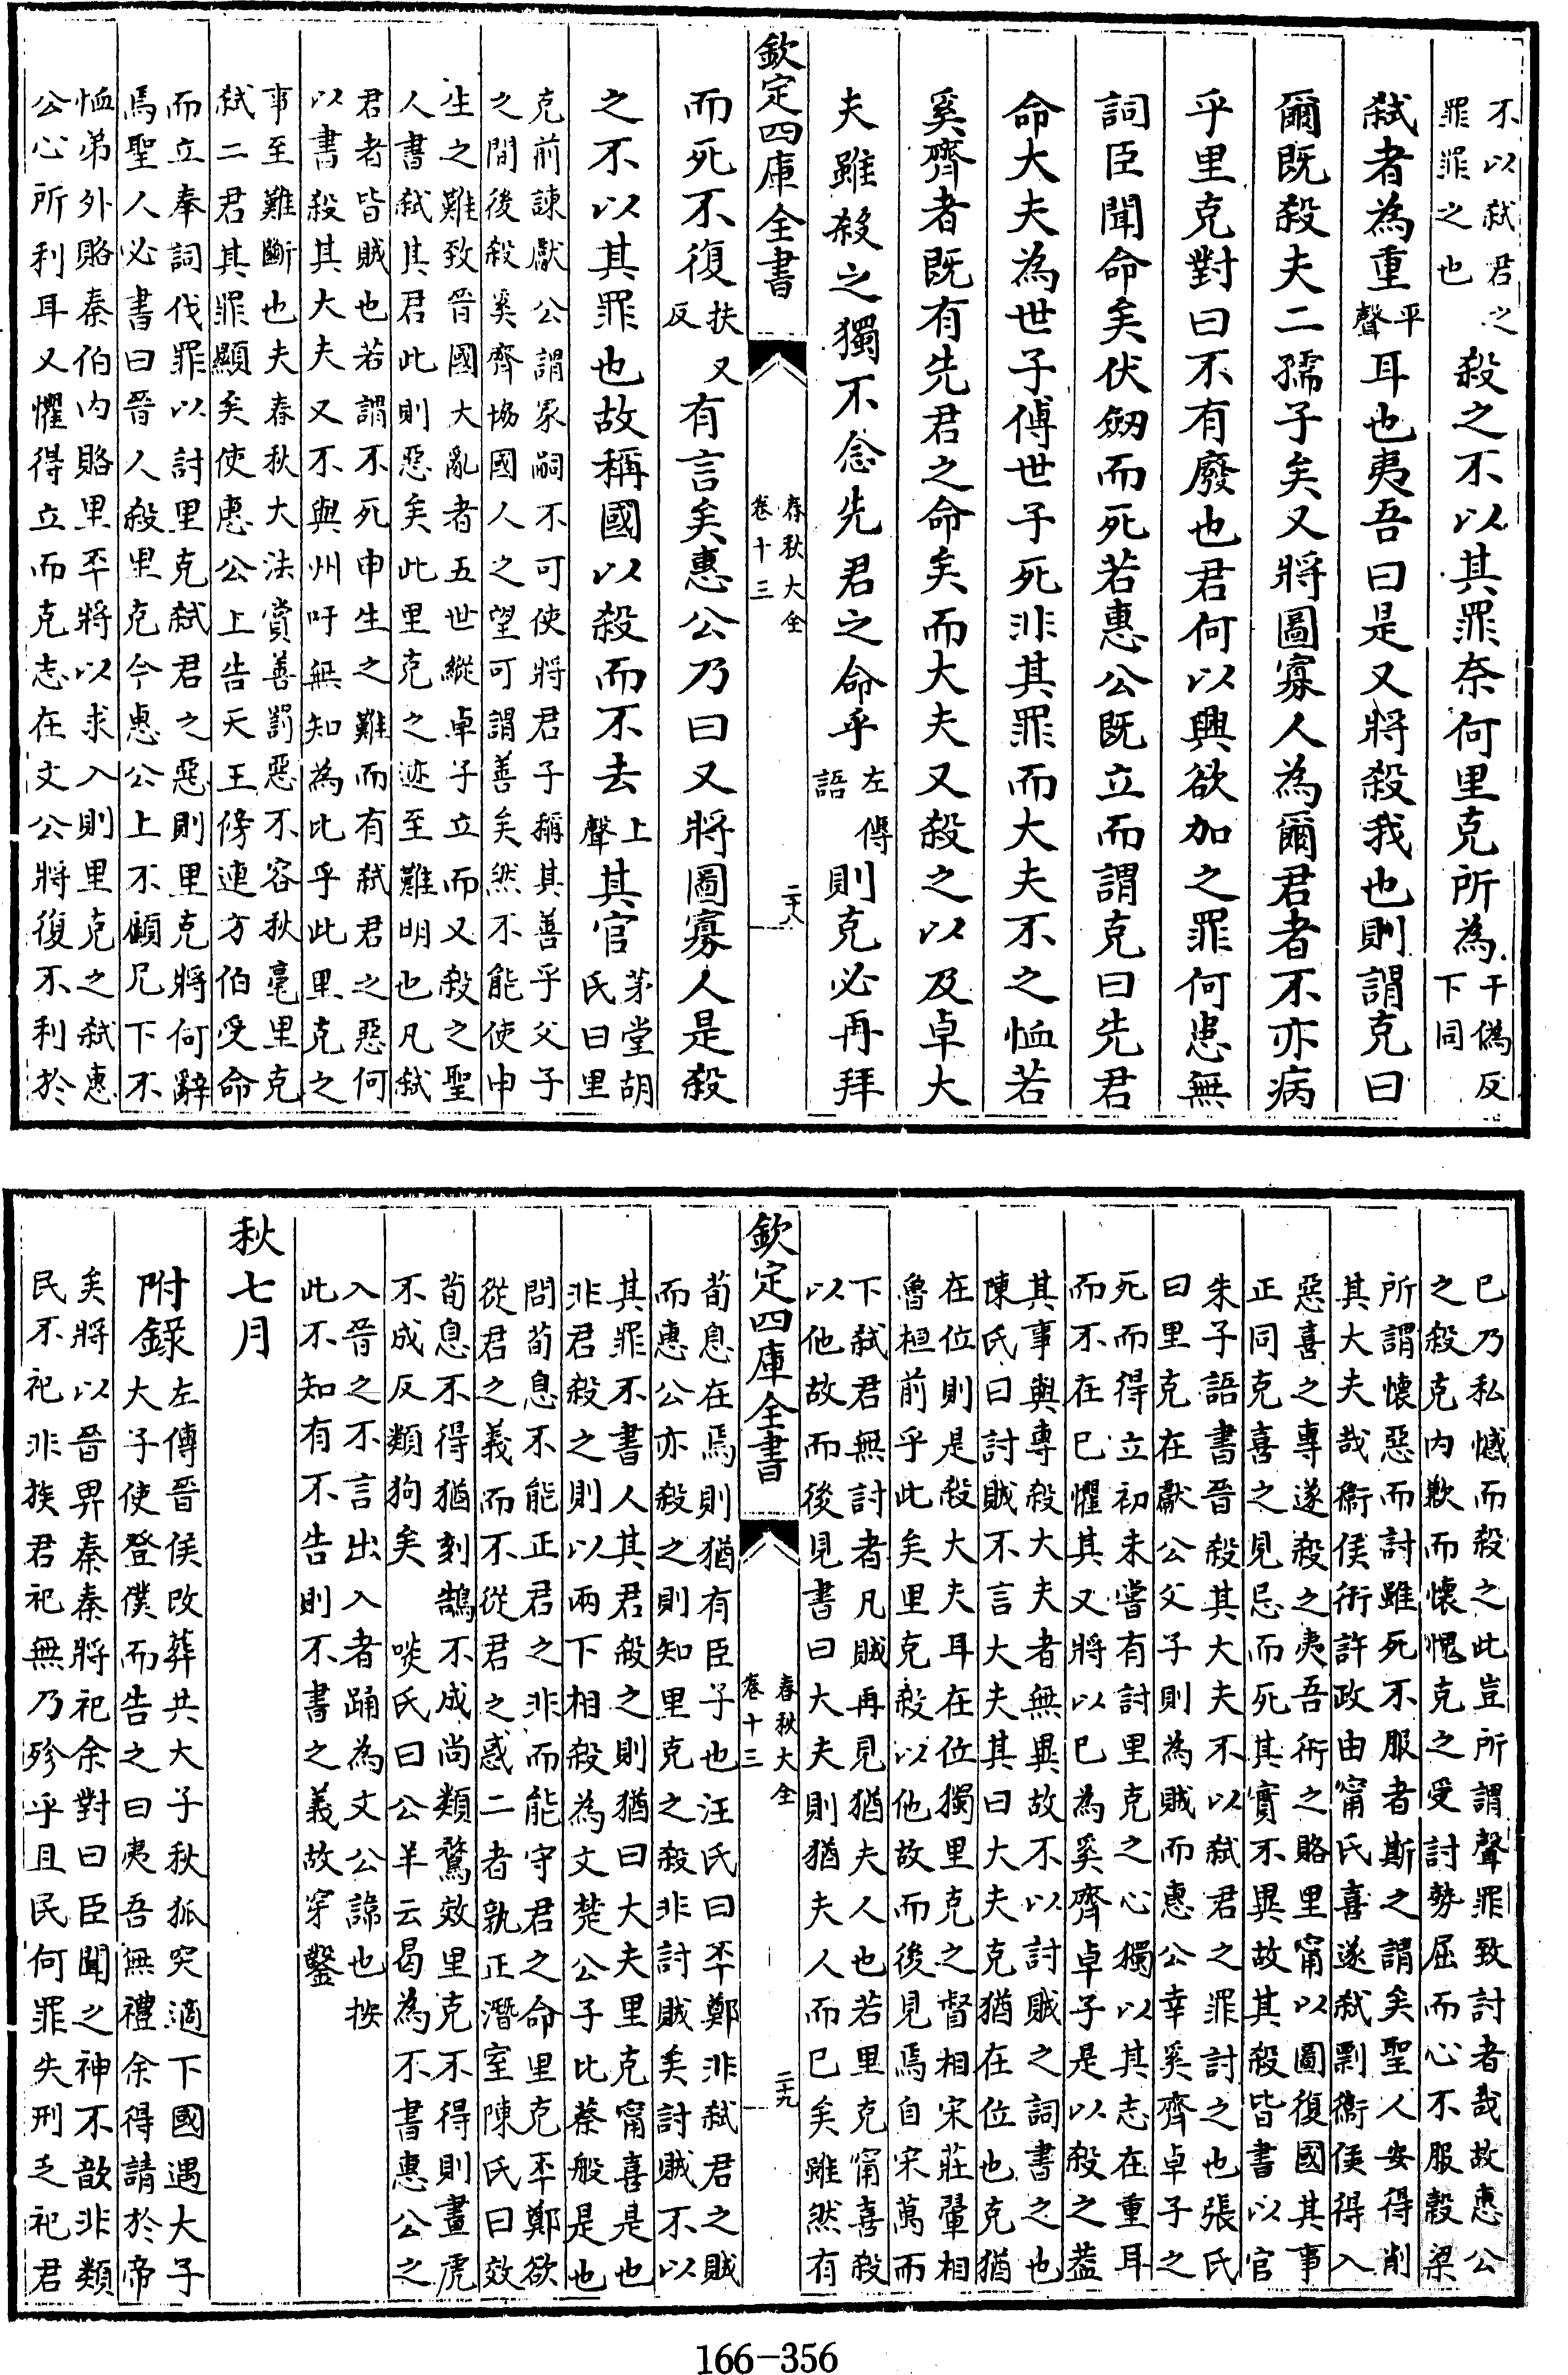 不以弑君之罪罪之也殺之不以其罪奈何里克所為干偽反下同
弑者為重平聲耳也夷吾曰是又將殺我也則謂克曰
爾既殺夫二孺子矣又將圖寡人為爾君者不亦病
乎里克對曰不有廢也君何以興欲加之罪何患無
詞臣聞命矣伏劒而死若惠公既立而謂克曰先君
命大夫為世子傅世子死非其罪而大夫不之恤若
奚齊者既有先君之命矣而大夫又殺之以及卓大
夫雖殺之獨不念先君之命乎左傳語則克必再拜
欽定四庫全書
春秋大全
卷十三
二十八
而死不復扶又反有言矣惠公乃曰又將圖寡人是殺
之不以其罪也故稱國以殺而不去上聲其官茅堂胡氏曰里
克前諫獻公謂冢嗣不可使將君子稱其善乎父子
之間後殺奚齊協國人之望可謂善矣然不能使申
生之難致晉國大亂者五世縱卓子立而又殺之聖
人書弑其君此則惡矣此里克之迹至難明也凡弑
君者皆賊也若謂不死申生之難而有弑君之惡何
以書殺其大夫又不與州吁無知為比乎此里克之
事至難斷也夫春秋大法賞善罰惡不容秋毫里克
弑二君其罪顯矣使惠公上告天王傍連方伯受命
而立奉詞伐罪以討里克弑君之惡則里克將何辭
焉聖人必書曰晉人殺里克今惠公上不顧兄下不
恤弟外賂秦伯内賂里丕將以求入則里克之弑惠
公心所利耳又懼得立而克志在文公將復不利於
已乃私憾而殺之此豈所謂聲罪致討者哉故惠公
之殺克内歉而懷愧克之受討勢屈而心不服穀梁
所謂懷惡而討雖死不服者斯之謂矣聖人安得削
其大夫哉衞侯衎許政由甯氏喜遂弑剽衞侯得入
惡喜之專遂殺之夷吾衎之賂里甯以圖復國其事
正同克喜之見忌而死其實不異故其殺皆書以官
朱子語書晉殺其大夫不以弑君之罪討之也張氏
曰里克在獻公父子則為賊而惠公幸奚齊卓子之
死而得立初未嘗有討里克之心獨以其志在重耳
而不在已懼其又將以已為奚齊卓子是以殺之葢
其事與專殺大夫者無異故不以討賊之詞書之也
陳氏曰討賊不言大夫其曰大夫克猶在位也克猶
在位則是殺大夫耳在位獨里克之督相宋莊翬相
魯桓前乎此矣里克殺以他故而後見焉自宋萬而
下弑君無討者凡賊再見猶夫人也若里克甯喜殺
以他故而後見書曰大夫則猶夫人而已矣雖然有
欽定四庫全書
春秋大全
卷十三
二十九
荀息在焉則猶有臣子也汪氏曰丕鄭非弑君之賊
而惠公亦殺之則知里克之殺非討賊矣討賊不以
其罪不書人其君殺之則猶曰大夫里克甯喜是也
非君殺之則以兩下相殺為文楚公子比蔡般是也
問荀息不能正君之非而能守君之命里克丕鄭欲
從君之義而不從君之惑二者孰正潛室陳氏曰效
荀息不得猶刻鵠不成尚類鶩效里克不得則畫虎
不成反類狗矣 啖氏曰公羊云曷為不書惠公之
入晉之不言出入者踊為文公諱也按
此不知有不告則不書之義故穿鑿
秋七月
附錄左傳晉侯改葬共大子秋狐突適下國遇大子
大子使登僕而告之曰夷吾無禮余得請於帝
矣將以晉畀秦秦將祀余對曰臣聞之神不歆非類
民不祀非族君祀無乃殄乎且民何罪失刑乏祀君
166-356